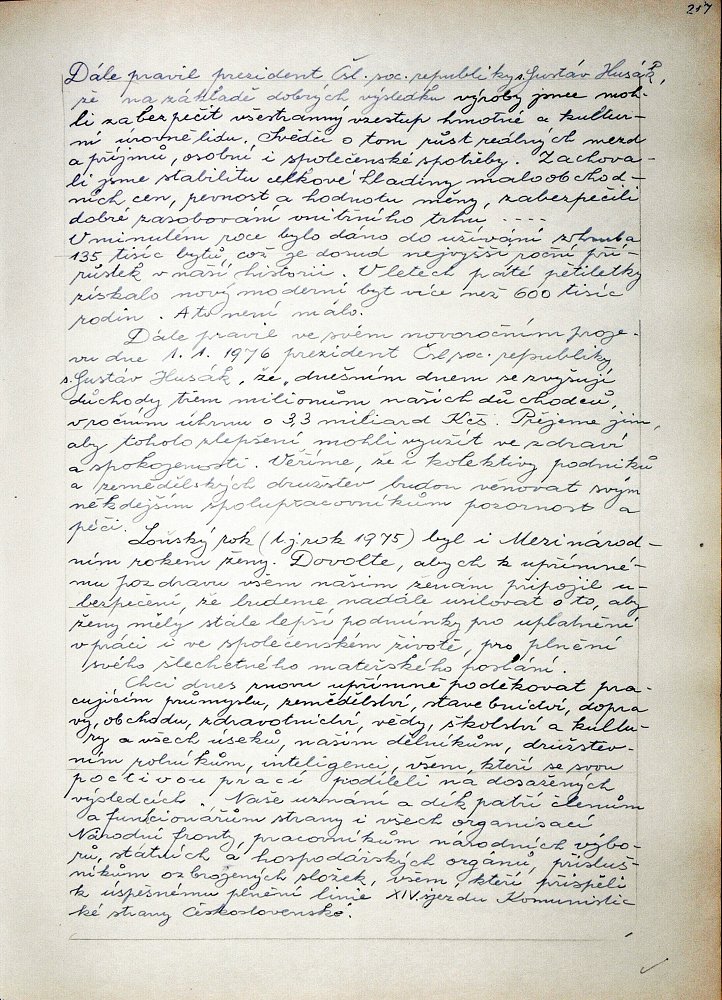 217
Dále pravil prezident Čsl. soc. republiky s. Gustáv Husák,
že na základě dobrých výsledků výroby jsme moh-
li zabezpečit všestranný vzestup hmotné a kultur-
ní úrovně lidu. Svědčí o tom růst reálných mezd
a příjmů, osobní i společenské spotřeby. Zachova-
li jsme stabilitu celkové hladiny maloobchod-
ních cen, pevnost a hodnotu měny, zabezpečili
dobré zasobování vnitřního trhu ....
V minulém roce bylo dáno do užívání zhruba
135 tisíc bytů, což je dosud nejvyšší roční pří-
růstek v naší historii. V letech páté pětiletky
získalo nový moderní byt více než 600 tisíc
rodin. A to není málo.
Dále pravil ve svém novoročním proje-
vu dne 1. 1. 1976 prezident Čsl. soc. republiky
s. Gustáv Husák, že „dnešním dnem se zvyšují
důchody třem milionům našich důchodců,
v ročním úhrnu o 3,3 miliard Kčs. Přejeme jim,
aby tohoto zlepšení mohli využít ve zdraví
a spokojenosti. Věříme, že i kolektivy podniků
a zemědělských družstev budou věnovat svým
někdejším spolupracovníkům pozornost a
péči.
Loňský rok (t.j. rok 1975) byl i Mezinárod-
ním rokem ženy. Dovolte, abych k upřímné-
mu pozdravu všem našim ženám připojil u-
bezpečení, že budeme nadále usilovat o to, aby
ženy měly stále lepší podmínky pro uplatnění
v práci i ve společenském životě, pro plnění
svého šlechetného mateřského poslání.
Chci dnes znovu upřímně poděkovat pra-
cujícím průmyslu, zemědělství, stavebnictví, dopra
vy, obchodu, zdravotnictví, vědy, školství a kultu-
ry a všech úseků, našim dělníkům, družstev-
ním rolníkům, inteligenci, všem, kteří se svou
poctivou prací podíleli na dosažených
výsledcích. Naše uznání a dík patří členům
a funkcionářům strany i všech organisací
Národní fronty, pracovníkům národních výbo-
rů, státních a hospodářských orgánů, přísluš-
níkům ozbrojených složek, všem, kteří přispěli
k úspěšnému plnění linie XIV. sjezdu Komunistic
ké strany Československa.